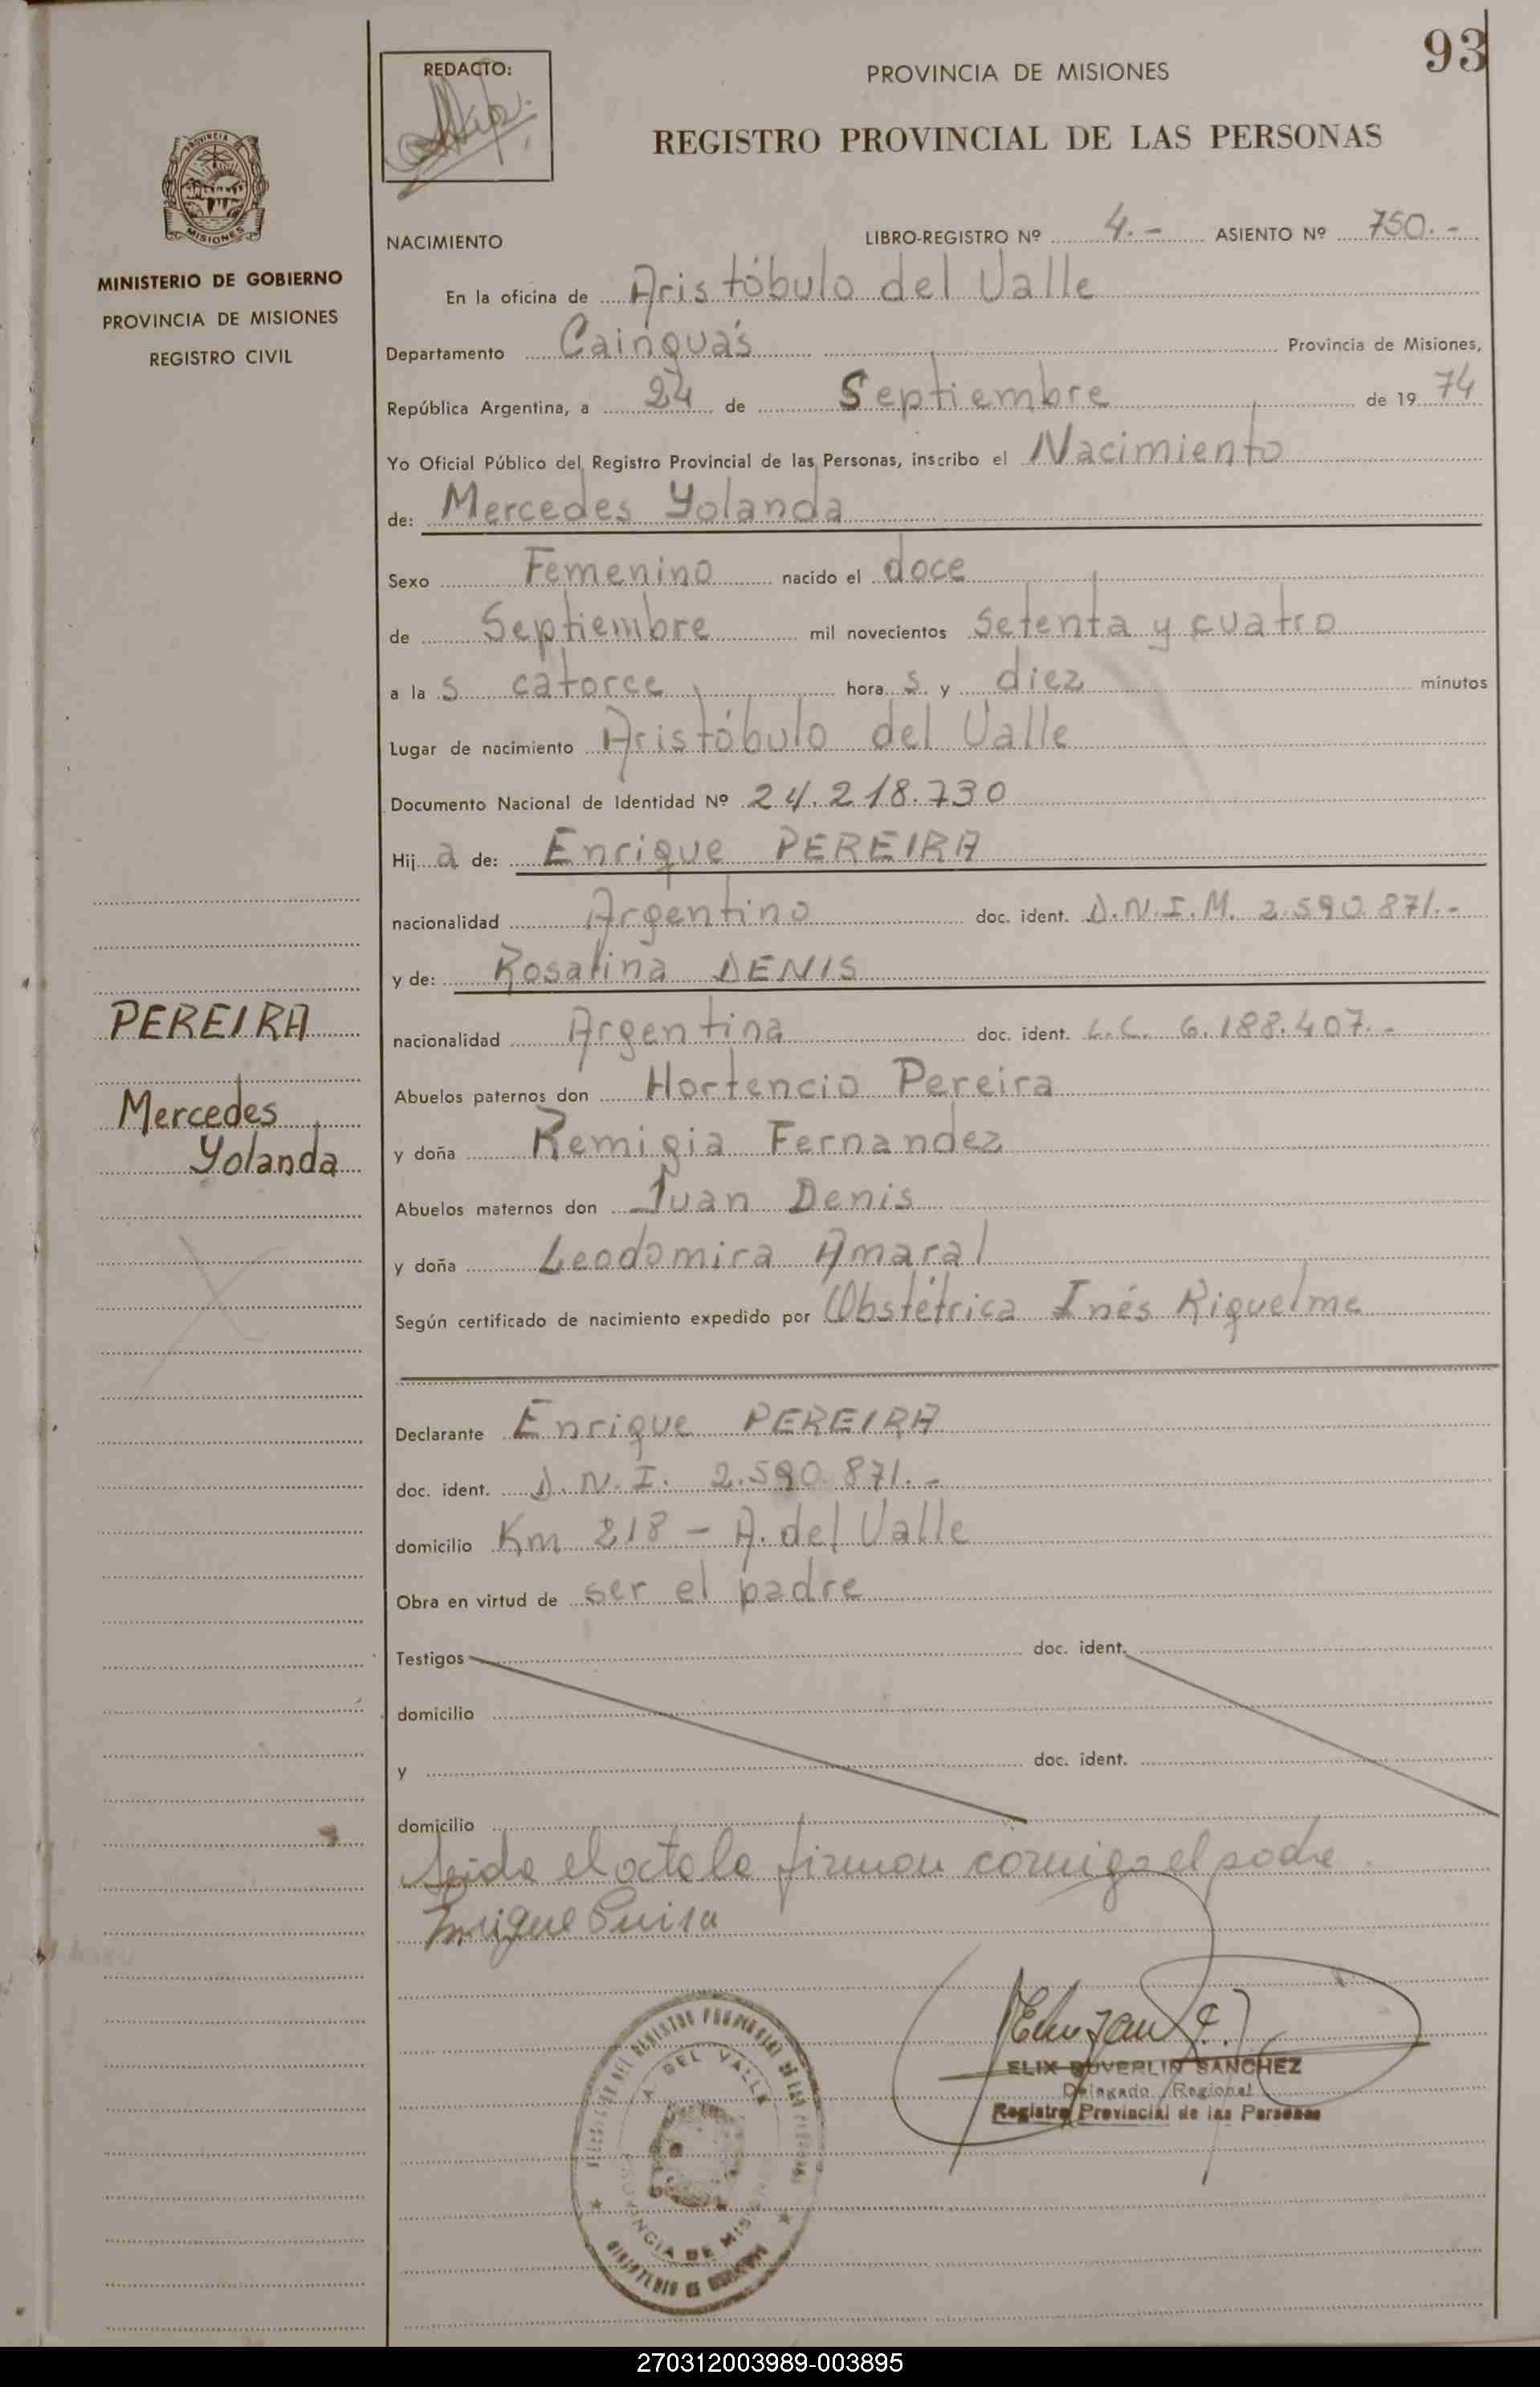 93
REDACTO:
PROVINCIA DE MISIONES
REGISTRO PROVINCIAL DE LAS PERSONAS
PROVINCIA
MISIONES
MINISTERIO DE GOBIERNO
PROVINCIA DE MISIONES
REGISTRO CIVIL
NACIMIENTO LIBRO-REGISTRO Nº 4.- ASIENTO Nº 750.-
En la oficina de Aristóbulo del Valle
Departamento Cainguás Provincia de Misiones,
República Argentina, a 24 de Septiembre de 1974
Yo Oficial Público del Registro Provincial de las Personas, inscribo el Nacimiento
de: Mercedes Yolanda
Sexo Femenino nacido el doce
de Septiembre mil novecientos setenta y cuatro
a la s catorce hora s y diez minutos
Lugar de nacimiento Aristóbulo del Valle
Documento Nacional de Identidad Nº 24.218.730
Hij a de: Enrique PEREIRA
nacionalidad Argentino doc. ident. D.N.I.M. 2.590.871.-
y de: Rosalina DENIS
nacionalidad Argentina doc. ident. L.C. 6.188.407.-
Abuelos paternos don Hortencio Pereira
y doña Remigia Fernandez
Abuelos maternos don Juan Denis
y doña Leodomira Amaral
Según certificado de nacimiento expedido por Obstétrica Inés Riquelme
PEREIRA
Mercedes
Yolanda
Declarante Enrique PEREIRA
doc. ident. D.N.I. 2.590.871.-
domicilio Km 218 - A. del Valle
Obra en virtud de ser el padre
Testigos doc. ident.
domicilio
y doc. ident.
domicilio
Leida el acta la firman conmigo el padre.
Enrique
ELIX DUVERLIN SANCHEZ
Delegado Regional
Registro Provincial de las Personas
DEL REGISTRO PROVINCIAL DE LAS
A. DEL VALLE
PROVINCIA DE MISIONES
MINISTERIO DE GOBIERNO
270312003989-003895